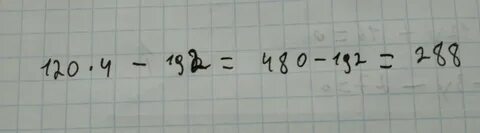 120·4 - 192 = 480 - 192 = 288